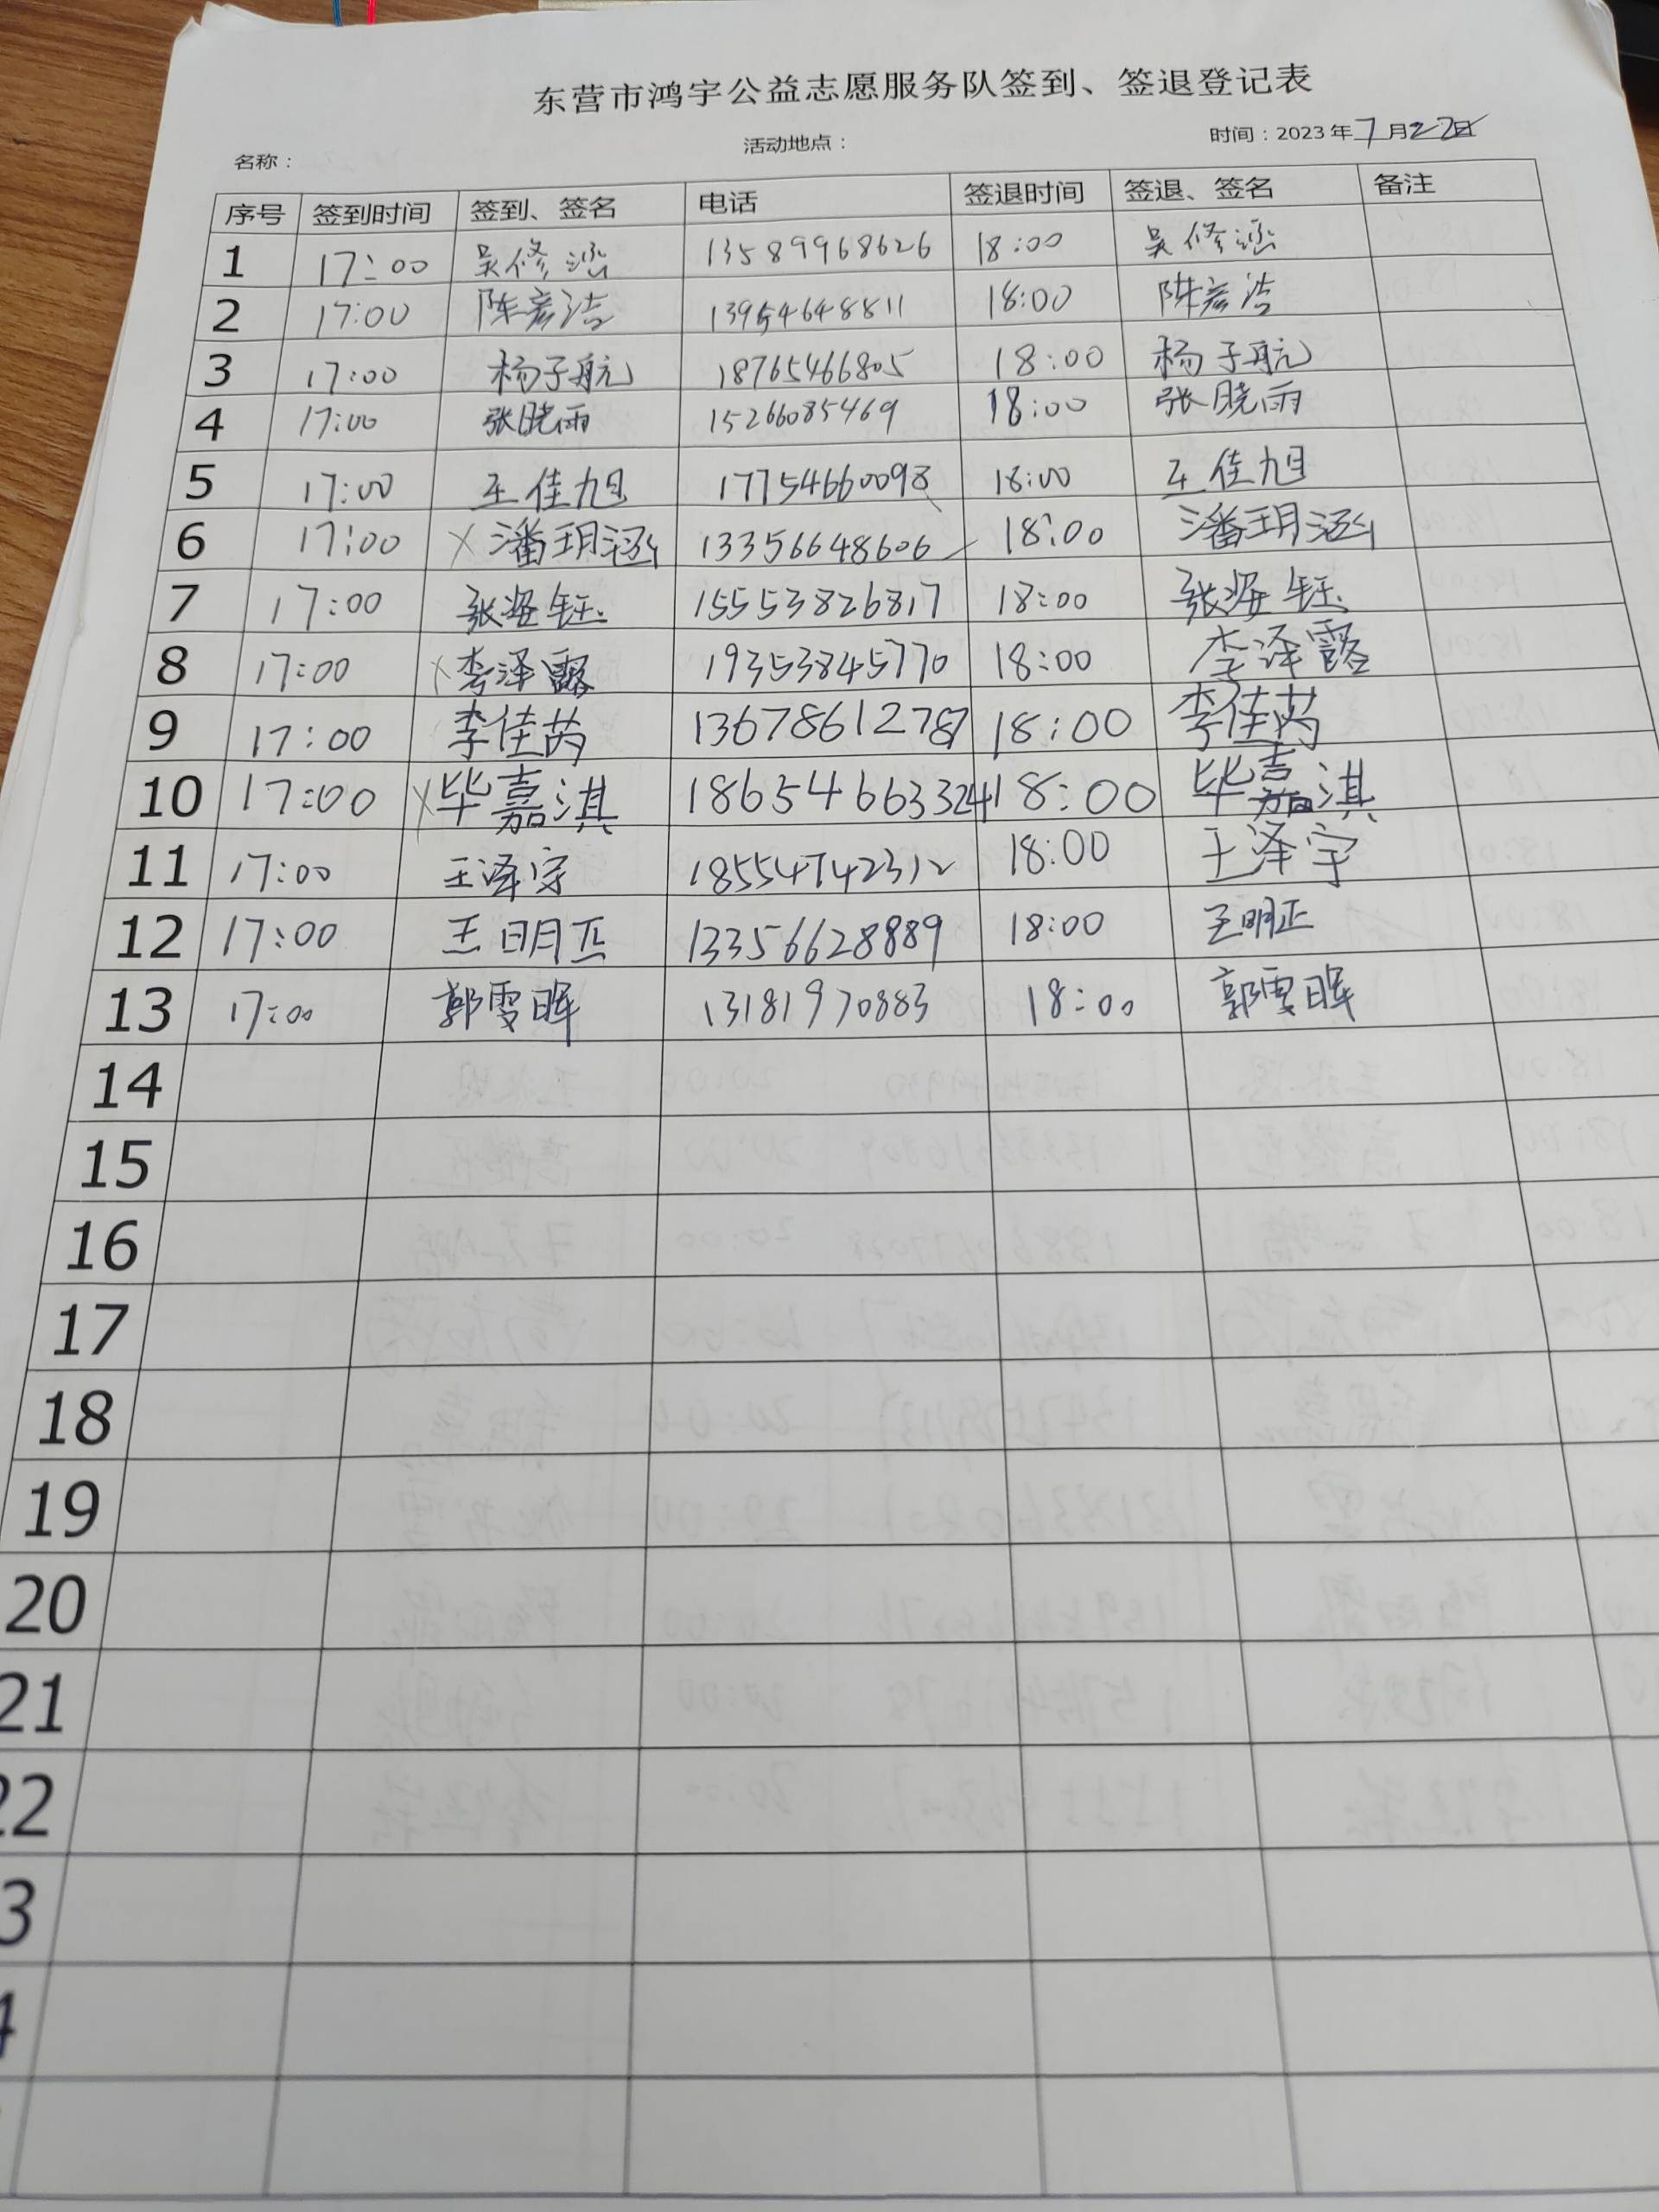 东营市鸿宇公益志愿服务队签到、签退登记表
名称： 活动地点： 时间：2023年7月27日
序号 签到时间 签到、签名 电话 签退时间 签退、签名 备注
1 17:00 吴修涵 13589968626 18:00 吴修涵
2 17:00 陈彦洁 13954648811 18:00 陈彦洁
3 17:00 杨子航 18765466805 18:00 杨子航
4 17:00 张晓雨 15266085469 18:00 张晓雨
5 17:00 王佳旭 17754660098 18:00 王佳旭
6 17:00 X 潘玥涵 13356648606 18:00 潘玥涵
7 17:00 张姿钰 15553826817 18:00 张姿钰
8 17:00 X 李泽露 19353845770 18:00 李泽露
9 17:00 李佳芮 13678612787 18:00 李佳芮
10 17:00 X 毕嘉淇 18654663324 18:00 毕嘉淇
11 17:00 王泽宇 18554742312 18:00 王泽宇
12 17:00 王明正 13356628889 18:00 王明正
13 17:00 郭雯晖 13181970883 18:00 郭雯晖
14
15
16
17
18
19
20
21
22
3
4